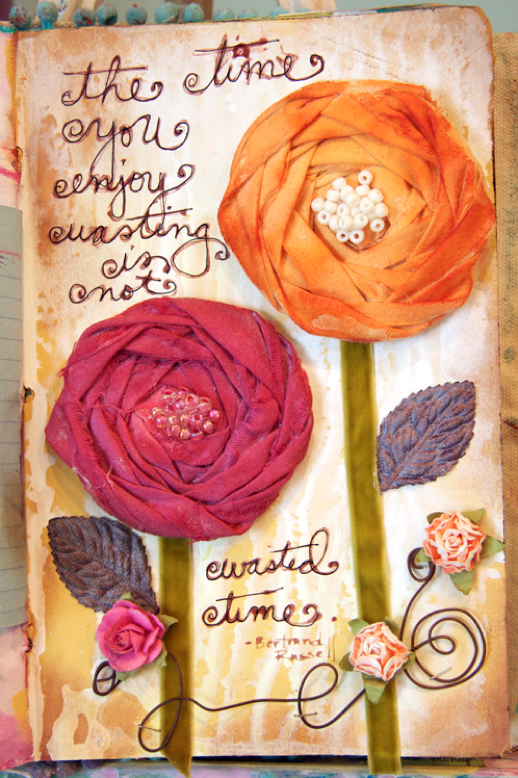 the time
you
enjoy
wasting
is
not
wasted
time.
-Bertrand
Russell